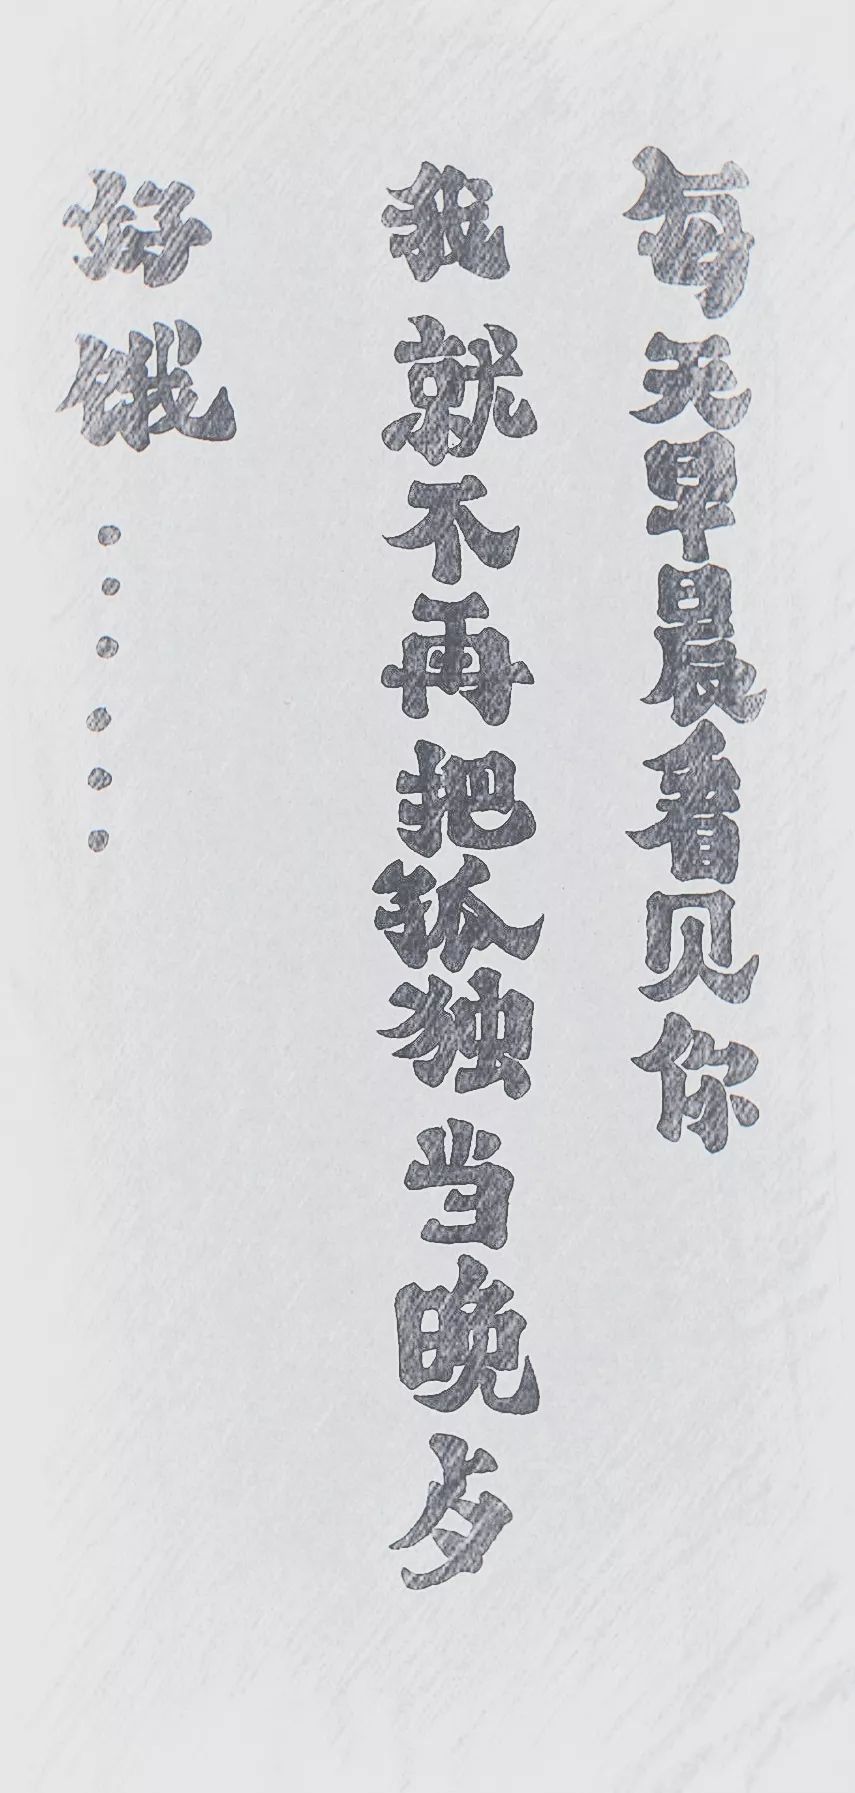 每天早晨看见你
我就不再把孤独当晚歺
好饿......